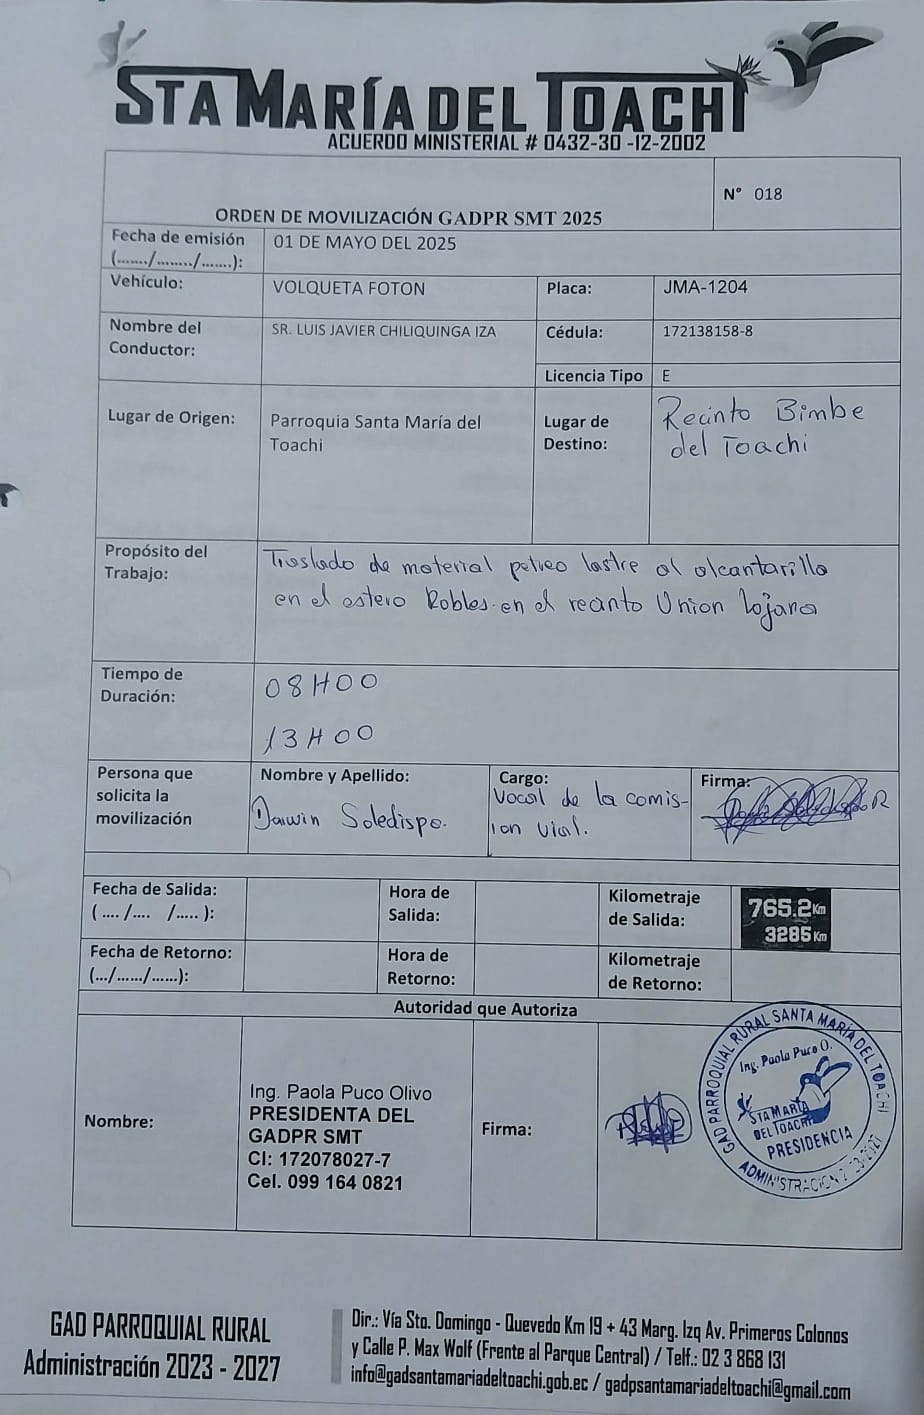 STA MARÍA DEL TOACHI
ACUERDO MINISTERIAL # 0432-30 -12-2002
ORDEN DE MOVILIZACIÓN GADPR SMT 2025
N° 018
Fecha de emisión
(......./......../.......):
01 DE MAYO DEL 2025
Vehículo:
VOLQUETA FOTON
Placa:
JMA-1204
Nombre del
Conductor:
SR. LUIS JAVIER CHILIQUINGA IZA
Cédula:
172138158-8
Licencia Tipo
E
Lugar de Origen:
Parroquia Santa María del
Toachi
Lugar de
Destino:
Recinto Bimbe
del Toachi
Propósito del
Trabajo:
Traslado de material petreo lastre al alcantarilla
en el estero Robles en el recinto Union Lojana
Tiempo de
Duración:
08H00
13H00
Persona que
solicita la
movilización
Nombre y Apellido:
Darwin Soledispa.
Cargo:
Vocal de la comis-
ion vial.
Firma:
Fecha de Salida:
( .... /.... /..... ):
Hora de
Salida:
Kilometraje
de Salida:
765.2Km
3285Km
Fecha de Retorno:
(.../....../......):
Hora de
Retorno:
Kilometraje
de Retorno:
Autoridad que Autoriza
Nombre:
Ing. Paola Puco Olivo
PRESIDENTA DEL
GADPR SMT
CI: 172078027-7
Cel. 099 164 0821
Firma:
GAD PARROQUIAL RURAL SANTA MARÍA DEL TOACHI
Ing. Paola Puco O.
STA MARÍA
DEL TOACHI
PRESIDENCIA
GAD PARROQUIAL RURAL
Administración 2023 - 2027
Dir.: Vía Sto. Domingo - Quevedo Km 19 + 43 Marg. Izq Av. Primeros Colonos
y Calle P. Max Wolf (Frente al Parque Central) / Telf.: 02 3 868 131
info@gadsantamariadeltoachi.gob.ec / gadpsantamariadeltoachi@gmail.com